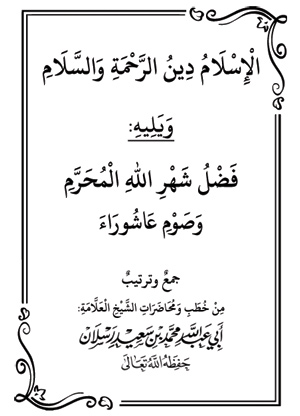 الْإِسْلَامُ دِينُ الرَّحْمَةِ وَالسَّلَامِ
وَيَلِيهِ:
فَضْلُ شَهْرِ اللهِ الْمُحَرَّمِ
وَصَوْمِ عَاشُورَاءَ
جمعٌ وترتيبٌ
مِنْ خُطَبِ وَمُحَاضَرَاتِ الشَّيْخِ الْعَلَّامَةِ:
أَبِي عَبْدِ اللَّهِ مُحَمَّدِ بْنِ سَعِيدٍ رَسْلَان
حَفِظَهُ اللَّهُ تَعَالَى